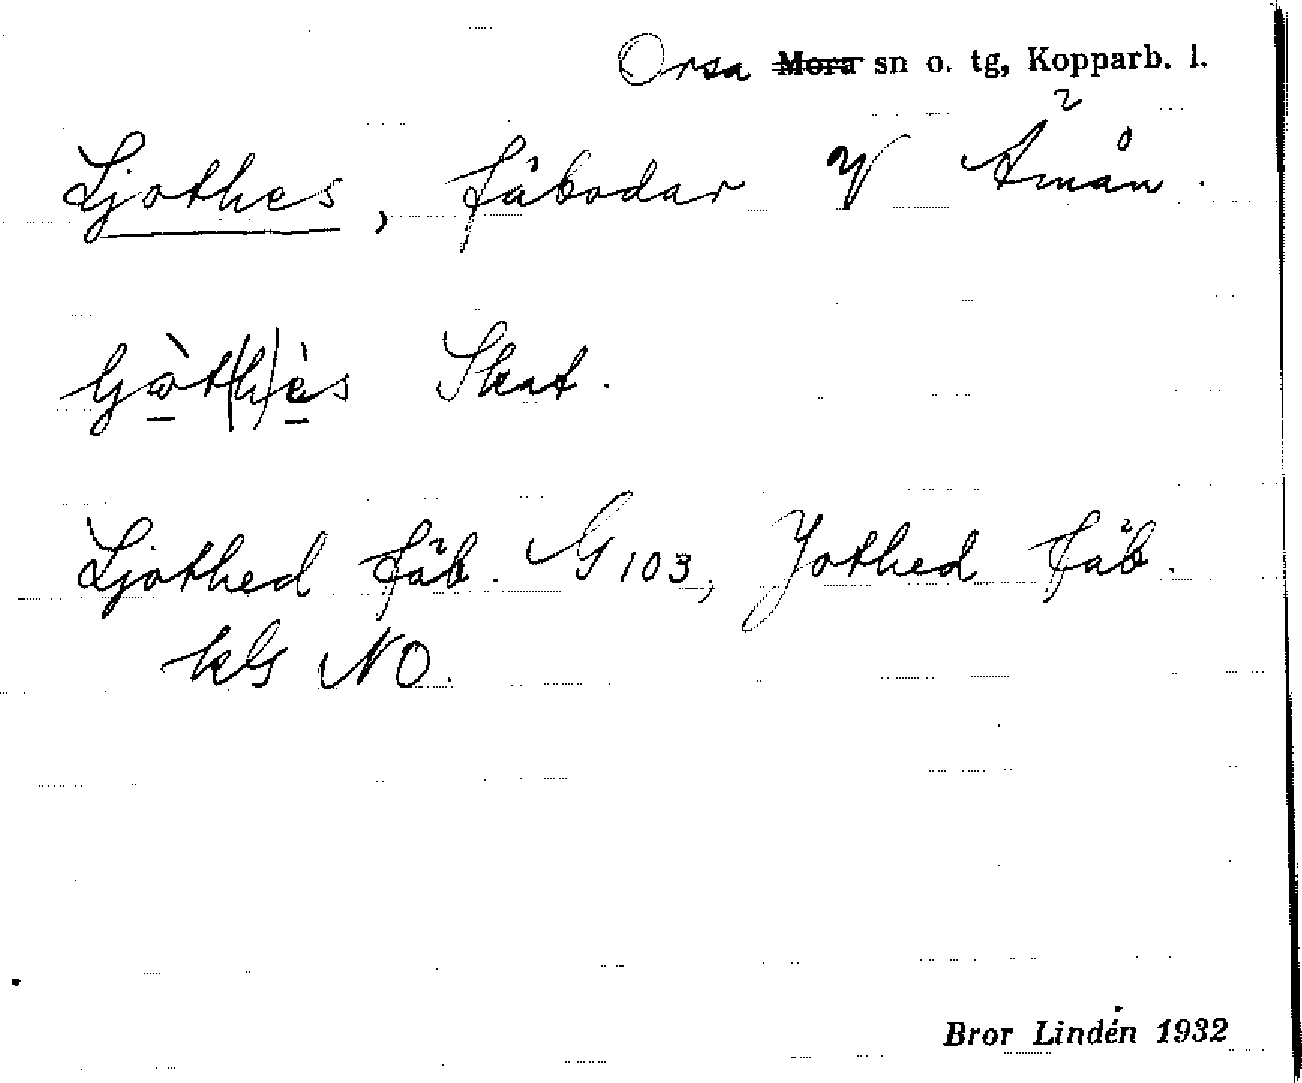 Orsa Mora sn o. tg, Kopparb. l.
Ljothes, fäbodar V Ämån.
Skat.
Ljothed fäb. G 103, Jothed fäb.
kG NO.
Bror Lindén 1932